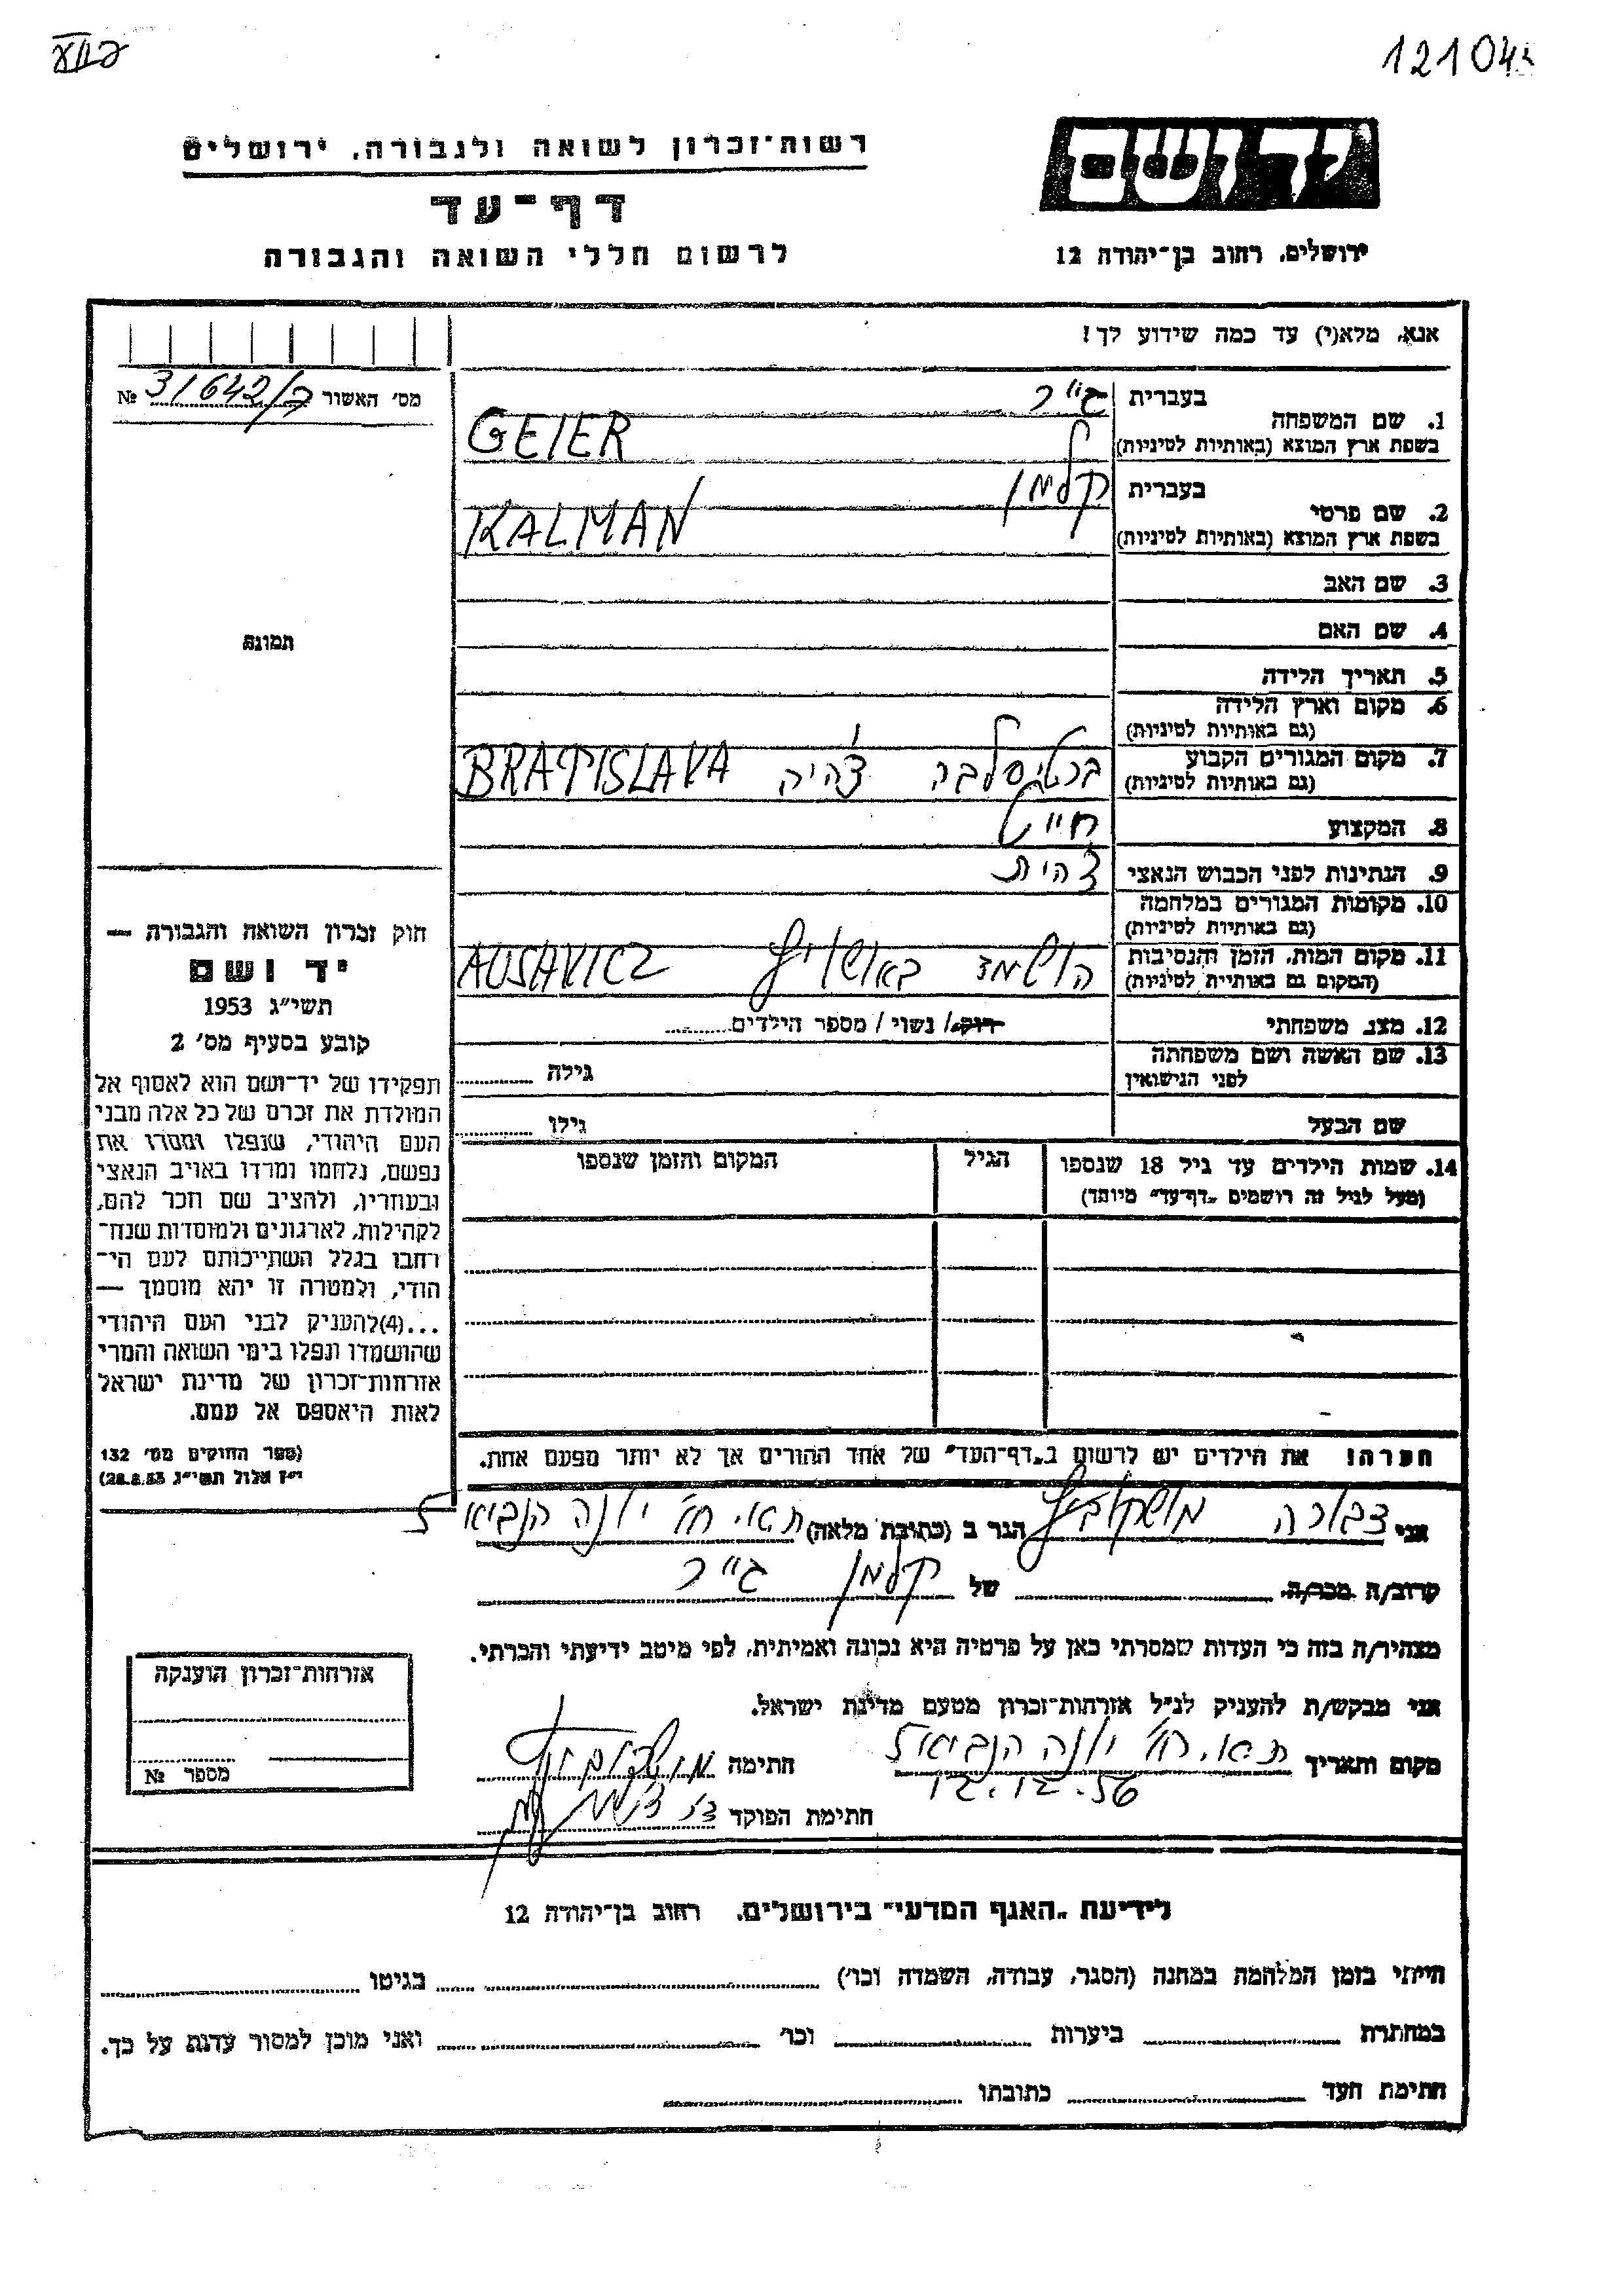 121042
רשות־זכרון לשואה ולגבורה, ירושלים
דף־עד
לרשום חללי השואה והגבורה
יד ושם
ירושלים, רחוב בן־יהודה 12
אנא, מלא(י) עד כמה שידוע לך!
מס׳ האשור 31642/ № 
1. שם המשפחה
בעברית גייר
בשפת ארץ המוצא (באותיות לטיניות) GEIER
2. שם פרטי
בעברית קלמן
בשפת ארץ המוצא (באותיות לטיניות) KALMAN
3. שם האב
4. שם האם
5. תאריך הלידה
6. מקום וארץ הלידה
(גם באותיות לטיניות)
7. מקום המגורים הקבוע ברטיסלבה צ׳היה BRATISLAVA
(גם באותיות לטיניות)
8. המקצוע חייט
9. הנתינות לפני הכבוש הנאצי צ׳הית
10. מקומות המגורים במלחמה
(גם באותיות לטיניות)
11. מקום המות, הזמן והנסיבות הושמד באושויץ AUSAVICZ
(המקום גם באותיית לטיניות)
12. מצב משפחתי רוק/ נשוי / מספר הילדים
13. שם האשה ושם משפחתה
לפני הנישואין
גילה
שם הבעל גילו
14. שמות הילדים עד גיל 18 שנספו
(מעל לגיל זה רושמים „דף־עד" מיוחד)
הגיל
המקום והזמן שנספו
הערה! את הילדים יש לרשום ב„דף־העד" של אחד ההורים אך לא יותר מפעם אחת.
תמונה
חוק זכרון השואה והגבורה —
יד ושם
תשי״ג 1953
קובע בסעיף מס׳ 2
תפקידו של יד־ושם הוא לאסוף אל
המולדת את זכרם של כל אלה מבני
העם היהודי, שנפלו ומסרו את
נפשם, נלחמו ומרדו באויב הנאצי
ובעוזריו, ולהציב שם וזכר להם,
לקהילות, לארגונים ולמוסדות שנח־
רבו בגלל השתייכותם לעם הי־
הודי, ולמטרה זו יהא מוסמך —
...(4)להעניק לבני העם היהודי
שהושמדו ונפלו בימי השואה והמרי
אזרחות־זכרון של מדינת ישראל
לאות היאספם אל עמם.
(ספר החוקים מס׳ 132
י״ז אלול תשי״ג 28.8.53)
אני דבורה מושקוביץ הגר ב (כתובת מלאה) ת״א, רח׳ יונה הנביא 5
קרוב/ה מכר/ה של קלמן גייר
מצהיר/ה בזה כי העדות שמסרתי כאן על פרטיה היא נכונה ואמיתית, לפי מיטב ידיעתי והכרתי.
אני מבקש/ת להעניק לנ״ל אזרחות־זכרון מטעם מדינת ישראל.
מקום ותאריך ת״א, רח׳ יונה הנביא 5 חתימה
12.12.56
חתימת הפוקד
אזרחות־זכרון הוענקה
מספר №
לידיעת „האגף המדעי" בירושלים, רחוב בן־יהודה 12
הייתי בזמן המלחמה במחנה (הסגר, עבודה, השמדה וכו׳) בגיטו
במחתרת ביערות וכו׳ ואני מוכן למסור עדות על כך.
חתימת העד כתובתו